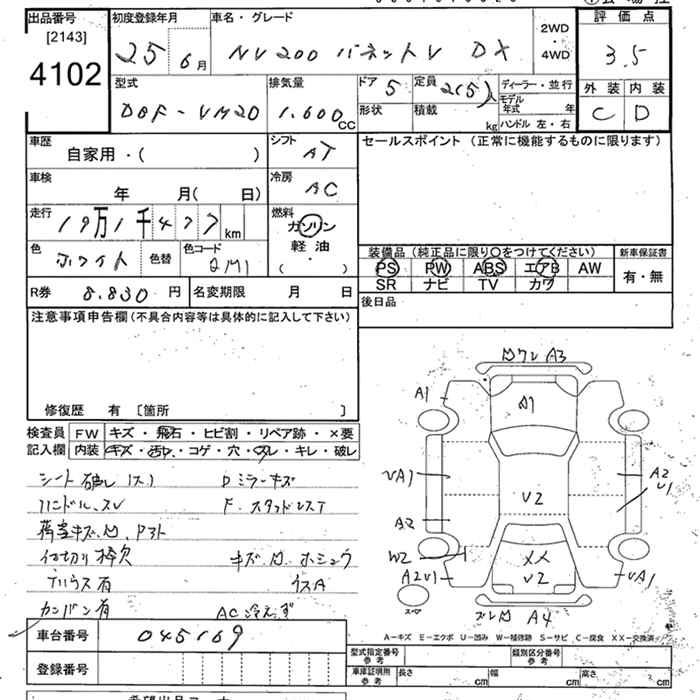 出品番号
[2143]
4102
初度登録年月
25年6月
車名・グレード
NV200 バネットV DX
2WD
・
4WD
評価点
3.5
外装 内装
C D
型式
DBF-VM20
排気量
1.600CC
ドア 5
定員 2(5)人
形状
積載 kg
ディーラー・並行
モデル年式 年
ハンドル 左・右
車歴
自家用・( )
シフト
AT
セールスポイント(正常に機能するものに限ります)
車検
年 月( 日)
冷房
AC
走行
19万1千477km
燃料
ガソリン
軽油
( )
色
ホワイト
色替
色コード
QM1
装備品(純正品に限り〇をつけてください)
PS PW ABS エアB AW
SR ナビ TV カワ
新車保証書
有・無
R券 8.830円
名変期限 月 日
後日品
注意事項申告欄(不具合内容等は具体的に記入して下さい)
修復歴 有 〔箇所 〕
検査員記入欄
FW キズ・飛石・ヒビ割・リペア跡・×要
内装 キズ・汚れ・コゲ・穴・スレ・キレ・破レ
シート破レ(大)
Dミラーキズ
ハンドルスレ
F.スタッドレスT
仕切り枠欠
カンバン有
AC冷えず
車台番号 045169
登録番号
A3
A1
A1
VA1
A2
U1
V2
A2
W2
XX
V2
A2V1
VA1
スペア
A4
A-キズ E-エクボ U-凹み W-補修跡 S-サビ C-腐食 XX-交換済
型式指定番号参考
類別区分番号参考
車庫証明用参考
長さ cm 幅 cm 高さ cm